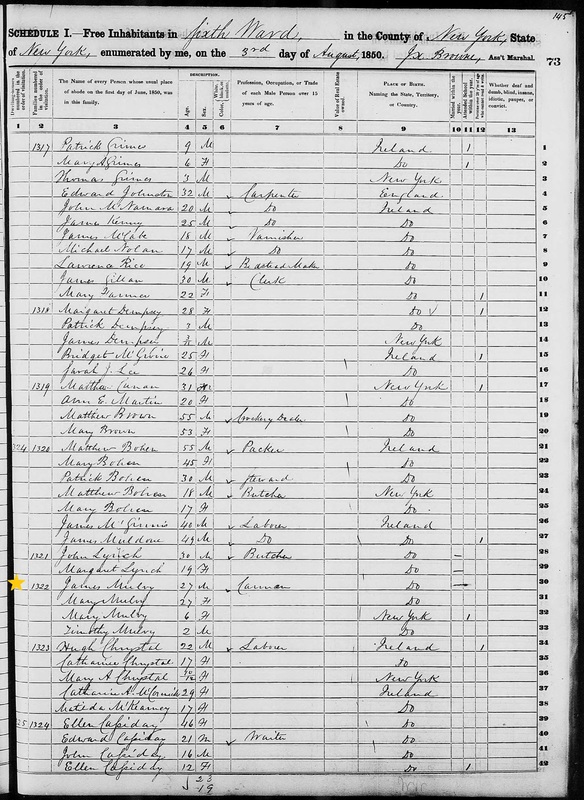 145
SCHEDULE I.—Free Inhabitants in Sixth Ward, in the County of New York, State
of New York, enumerated by me, on the 3rd day of August, 1850. Jx Brown, Ass't Marshal. 73
Dwelling-houses numbered in the order of visitation.
Families numbered in the order of visitation.
The Name of every Person whose usual place of abode on the first day of June, 1850, was in this family.
DESCRIPTION.
Age.
Sex.
Profession, Occupation, or Trade of each Male Person over 15 years of age.
Value of Real Estate owned.
PLACE OF BIRTH. Naming the State, Territory, or Country.
Married within the year.
Attended School within the year.
Whether deaf and dumb, blind, insane, idiotic, pauper, or convict.
1 2 3 4 5 6 7 8 9 10 11 12 13
1317 Patrick Grimes 9 M Ireland 1 1
Mary A Grimes 6 F Do 1 2
Thomas Grimes 3 M New York 3
Edward Johnston 32 M Carpenter England 4
John McNamara 20 M Do Ireland 5
James Kenny 25 M Do Do 6
James McCabe 18 M Varnisher Do 7
Michael Nolan 17 M Do Do 8
Lawrence Rice 19 M Bedstead Maker Do 9
James Gillan 30 M Clerk Do 10
Mary Farmer 22 F Do 1 11
1318 Margaret Dempsey 28 F Do 1 12
Patrick Dempsey 3 M Do 13
James Dempsey M New York 14
Bridget 25 F Ireland 1 15
Sarah J. Lee 26 F Do 16
1319 Martha Canan 31 New York 1 17
Ann E. Martin 20 F Do 18
Matthew Brown 55 M Crockery Dealer Do 19
Mary Brown 53 F Do 20
1320 Matthew Bohen 55 M Packer Ireland 21
Mary Bohen 45 F Do 22
Patrick Bohen 30 M Do 23
Matthew Bohen 18 M Butcher New York 24
Mary Bohen 17 F Do 25
James McGinnis 40 M Laborer Ireland 26
James Muldone 49 M Do Do 1 27
1321 John Lynch 30 M Butcher Do 28
Margaret Lynch 19 F Do 29
1322 James Mulvy 27 M Carman Do 30
Mary Mulvy 27 F Do 31
Mary Mulvy 6 F New York 1 32
Timothy Mulvy 2 M Do 33
1323 Hugh Chrystal 22 M Laborer Ireland 1 34
Catharine Chrystal 17 F Do 35
Mary A Chrystal F New York 36
Catharine A. McCormick 29 F Ireland 37
Matilda McKearney 17 F Do 38
1324 Ellen Cassiday 46 F Do 39
Edward Cassiday 21 M Waiter Do 40
John Cassiday 16 M Do 41
Ellen Cassiday 12 F Do 1 42
23
19